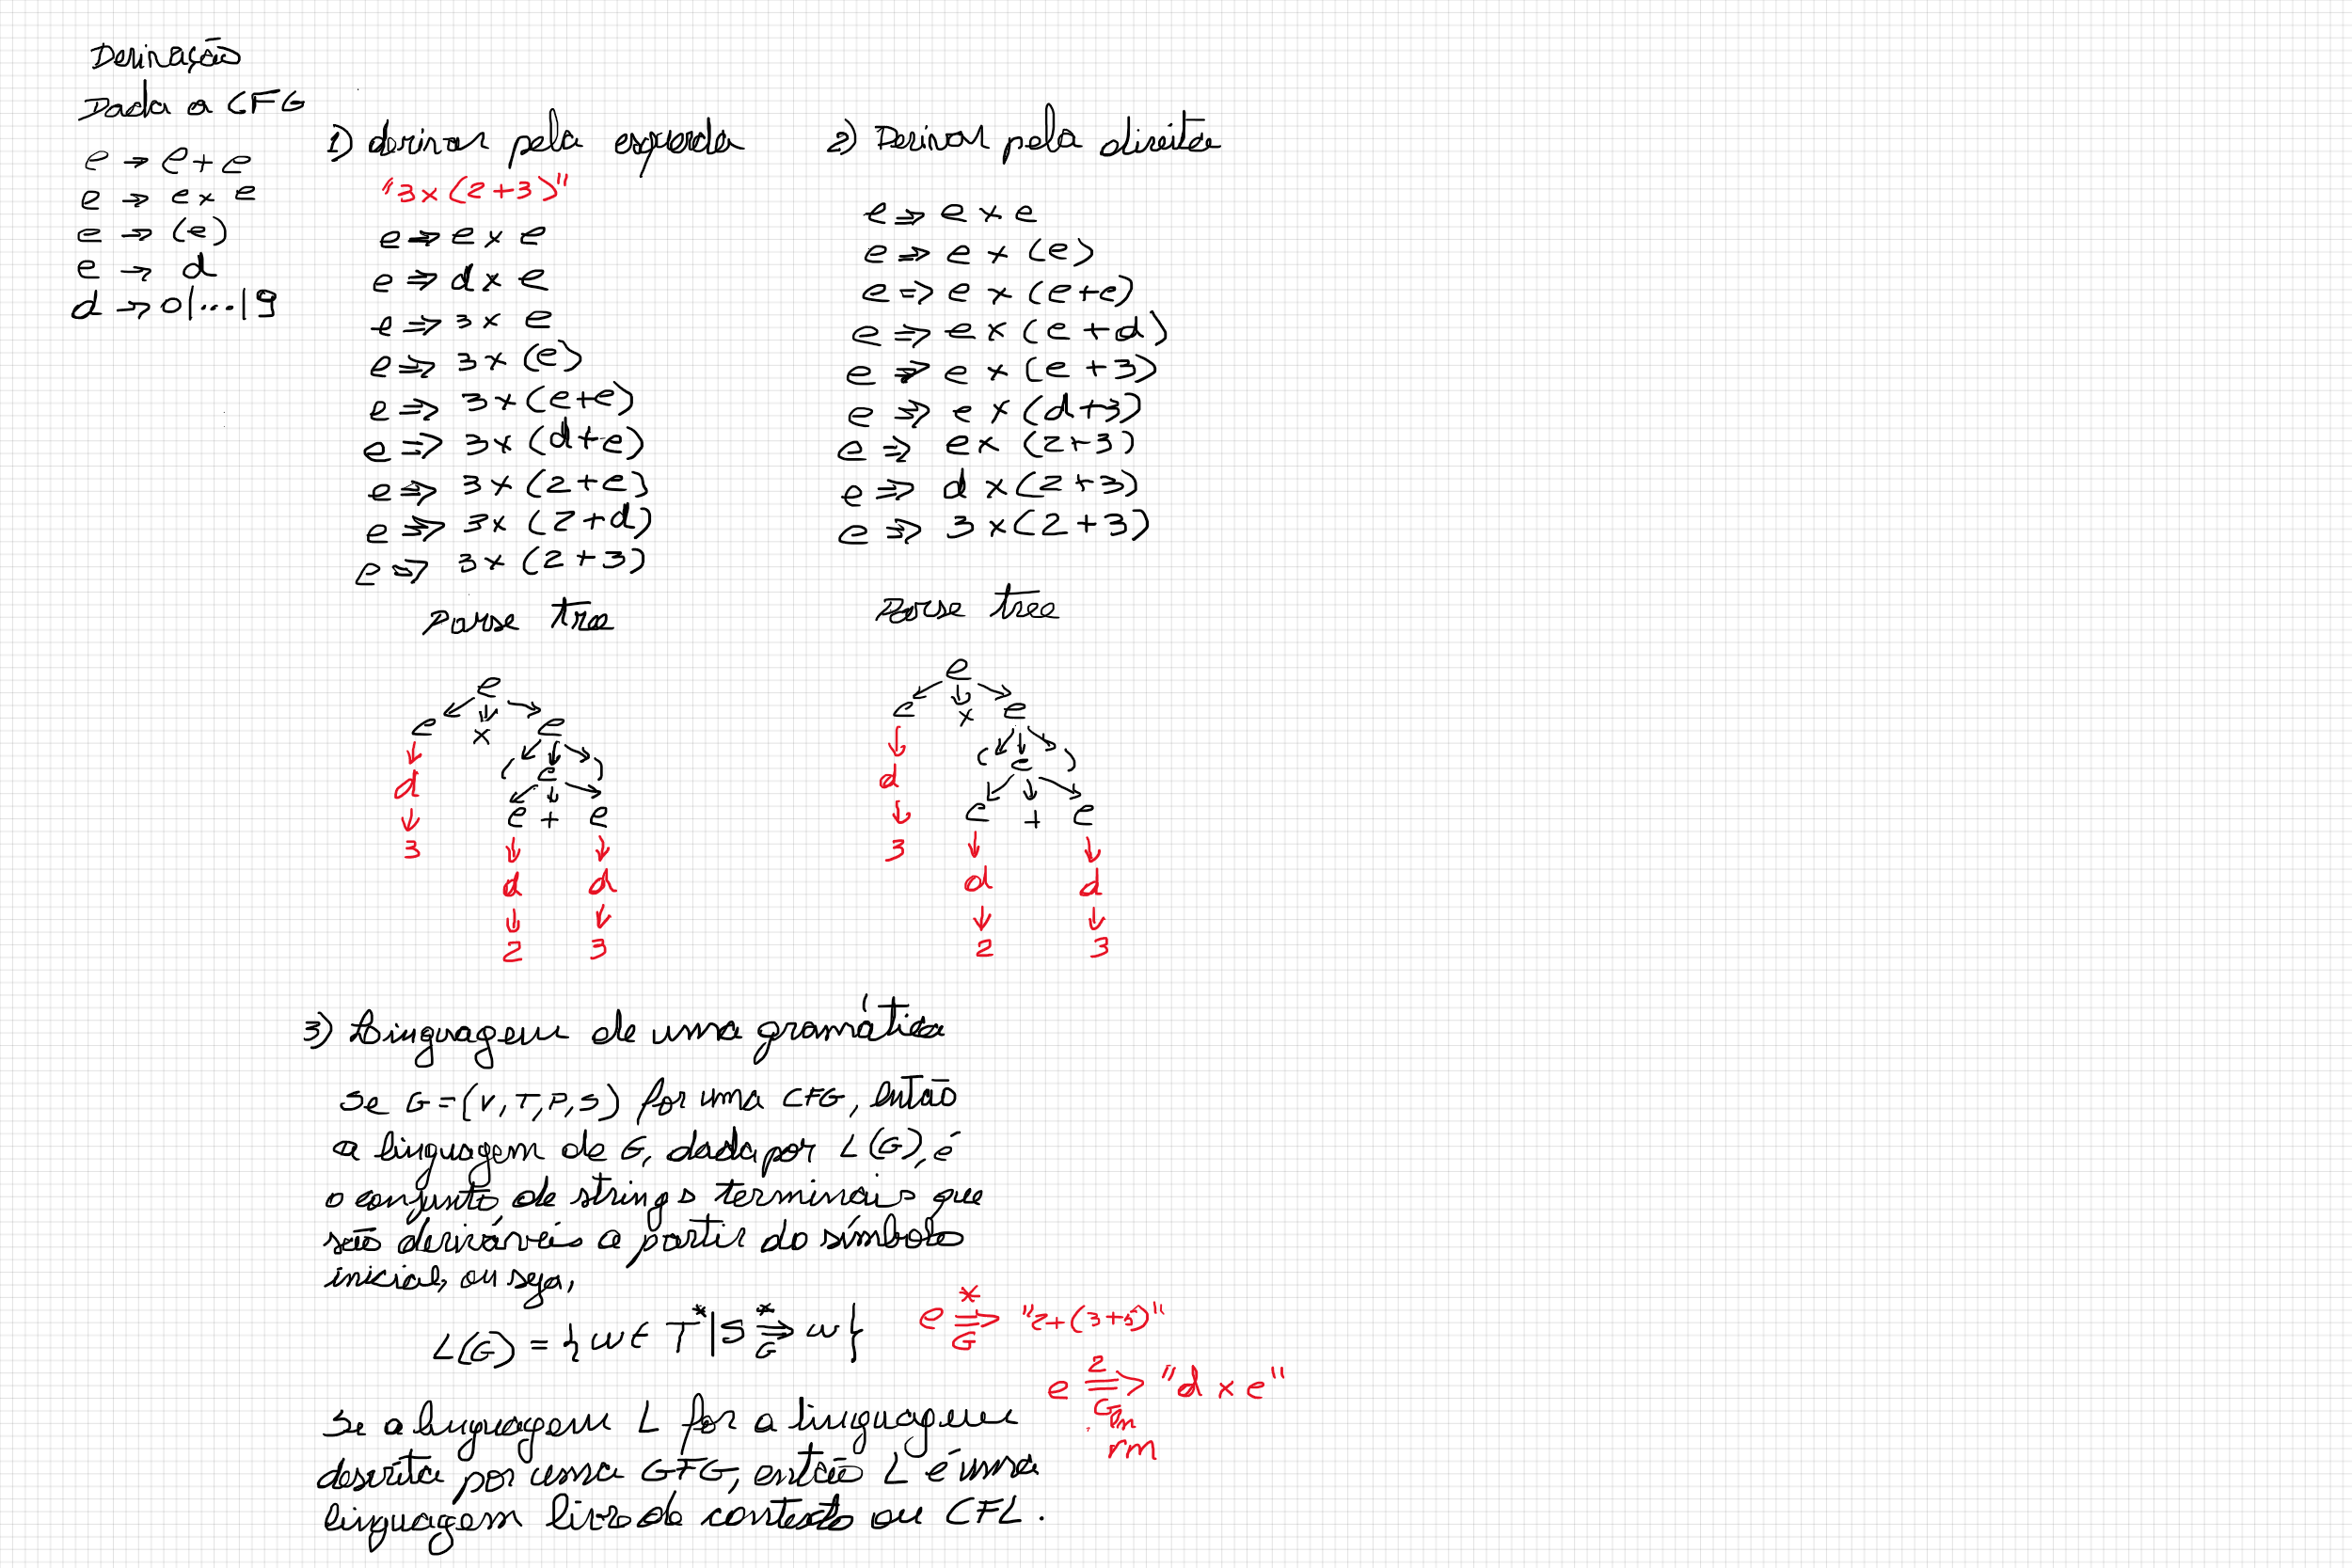 Derivação
Dada a CFG
e → e + e
e → e x e
e → (e)
e → d
d → 0|...|9
1) derivar pela esquerda
"3x(2+3)"
e ⇒ e x e
e ⇒ d x e
e ⇒ 3 x e
e ⇒ 3 x (e)
e ⇒ 3 x (e+e)
e ⇒ 3 x (d+e)
e ⇒ 3 x (2+e)
e ⇒ 3 x (2+d)
e ⇒ 3 x (2+3)
Parse tree
e
e x e
d ( e )
3 e + e
d d
2 3
2) Derivar pela direita
e ⇒ e x e
e ⇒ e x (e)
e ⇒ e x (e+e)
e ⇒ e x (e+d)
e ⇒ e x (e+3)
e ⇒ e x (d+3)
e ⇒ e x (2+3)
e ⇒ d x (2+3)
e ⇒ 3 x (2+3)
Parse tree
e
e x e
d ( e )
e + e
3
d d
2 3
3) Linguagem de uma gramática
Se G=(V,T,P,S) for uma CFG, então
a linguagem de G, dada por L(G), é
o conjunto de strings terminais que
são deriváveis a partir do símbolo
inicial, ou seja,
L(G) = {w ∈ T* | S *⇒G w}
e *⇒G "2+(3+5)"
e 2⇒G "d x e"
lm
rm
Se a linguagem L for a linguagem
descrita por uma GFG, então L é uma
linguagem livre de contexto ou CFL.